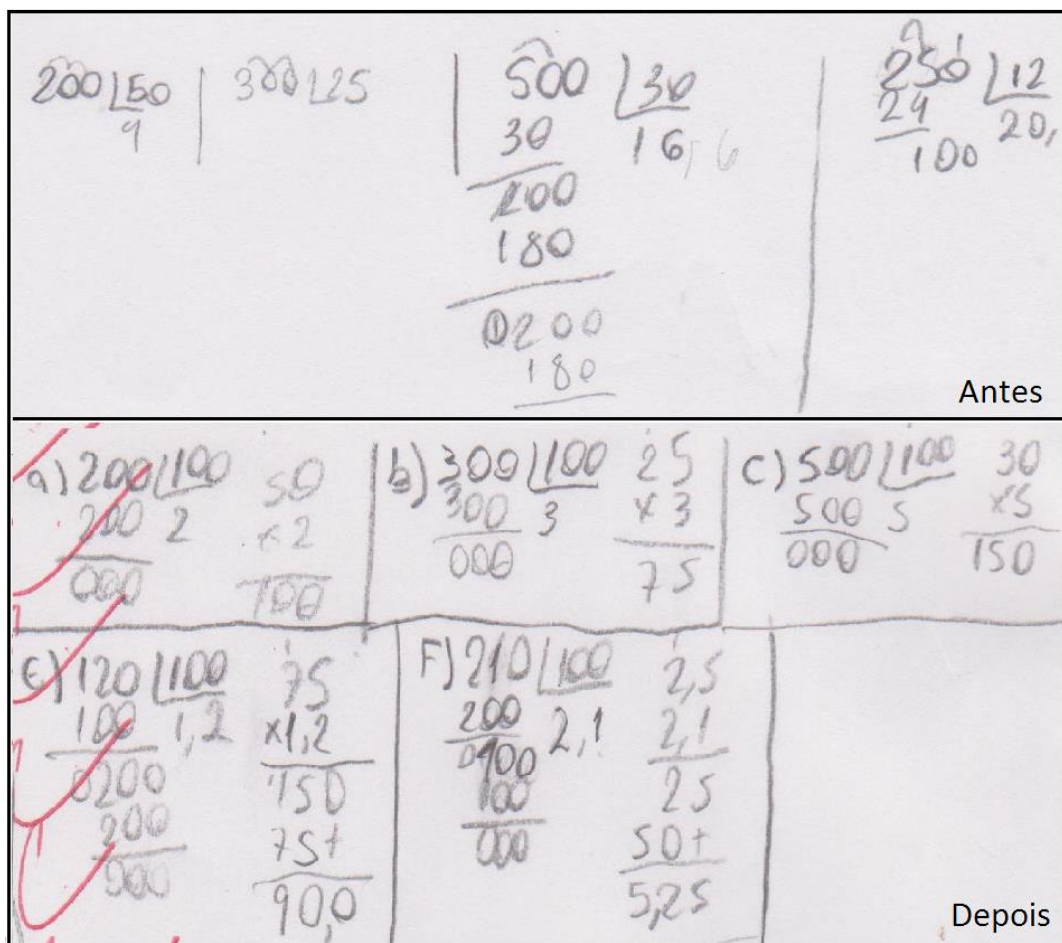 200 50
4
300 25
500 30
30 16,6
200
180
0200
180
250 12
24 20,
100
Antes
a) 200 100
200 2
000
50
x2
100
b) 300 100
300 3
000
25
x3
75
C) 500 100
500 5
000
30
x5
150
E) 120 100
100 1,2
0200
200
000
75
x1,2
150
75+
90,0
F) 210 100
200 2,1
0100
100
000
2,5
2,1
25
50+
5,25
Depois